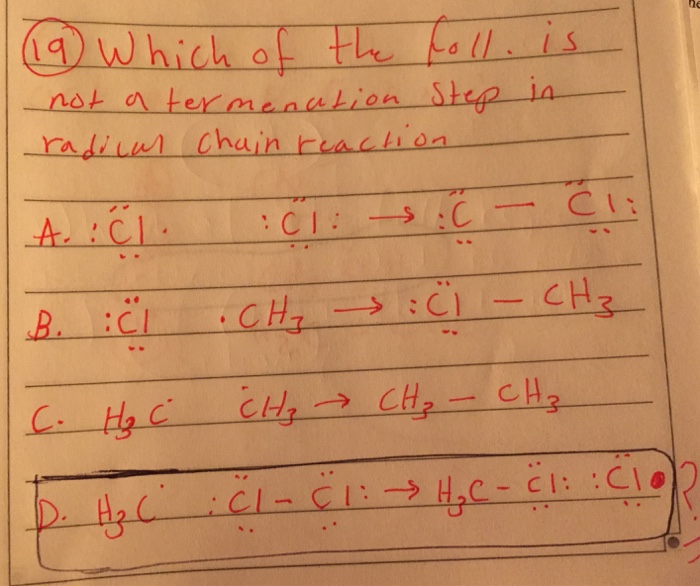 (19) Which of the foll. is
not a termenation step in
radical chain reaction
A. :C̤̈l· :C̤̈l: → :C̤̈ — C̤̈l:
B. :C̤̈l ·CH₃ → :C̤̈l — CH₃
C. H₃C˙ ĊH₃ → CH₃ — CH₃
D. H₃C˙ :C̤̈l – C̤̈l: → H₃C – C̤̈l: :C̤̈l• ?